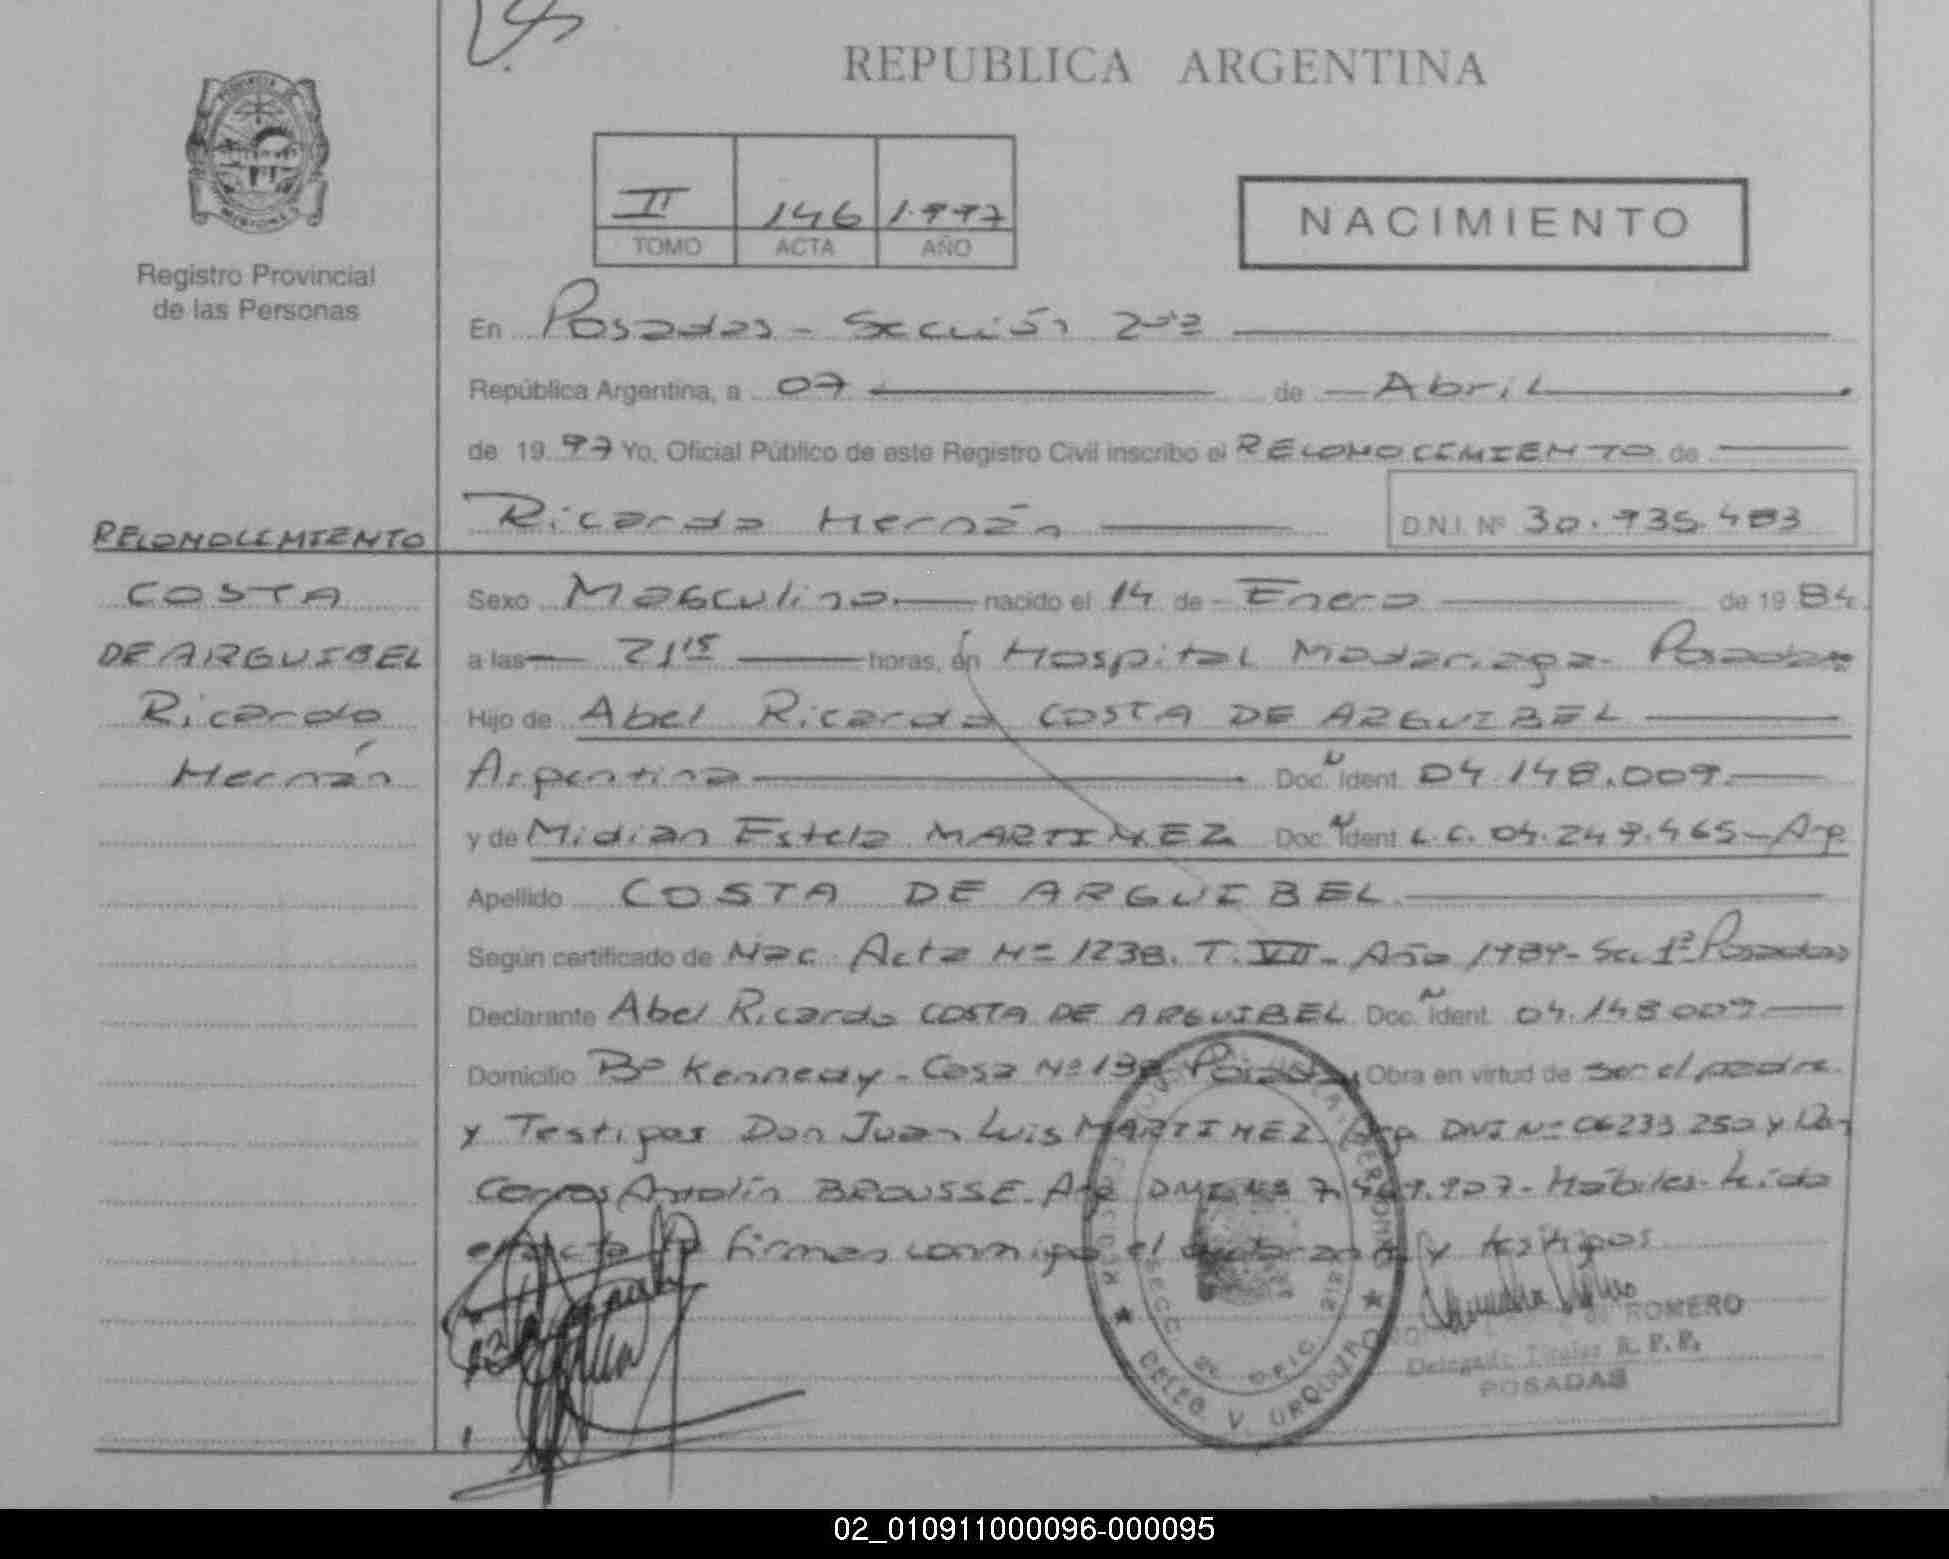 REPUBLICA ARGENTINA
Registro Provincial
de las Personas
II 146 1.997
TOMO ACTA AÑO
NACIMIENTO
En Posadas - Sección 2da
República Argentina, a 07 de Abril
de 1997 Yo, Oficial Público de este Registro Civil inscribo el RECONOCIMIENTO de
Ricardo Hernán D.N.I. Nº 30.935.483
RECONOCIMIENTO
COSTA
DE ARGUIBEL
Ricardo
Hernán
Sexo Masculino nacido el 14 de Enero de 1984.
a las 21 15 horas, en Hospital Madariaga - Posadas
Hijo de Abel Ricardo COSTA DE ARGUIBEL
Argentina Doc. Ident. 04.148.009.
y de Midian Estela MARTINEZ Doc. Ident. L.C. 04.249.465 - Arg.
Apellido COSTA DE ARGUIBEL.
Según certificado de Nac. Acta Nº 1238. T. VII - Año 1984 - Sec. 1ª Posadas
Declarante Abel Ricardo COSTA DE ARGUIBEL Doc. Ident. 04.148.009.
Domicilio Bº Kennedy - Casa Nº Posadas Obra en virtud de ser el padre
y Testigos Don Juan Luis MARTINEZ Arg. DNI Nº y Don
BROUSSE - Arg. DNI Nº - Hábiles - Leída
el acta firman conmigo el y testigos
SECC. 2ª OFIC.
DELEG. V. URQUIZA
ROMERO
Delegada Titular R. P. P.
POSADAS
02_010911000096-000095